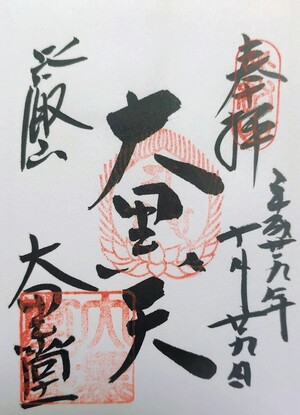 奉拝
平成廿九年
十月廿九日
大黒天
比叡山
大黒堂